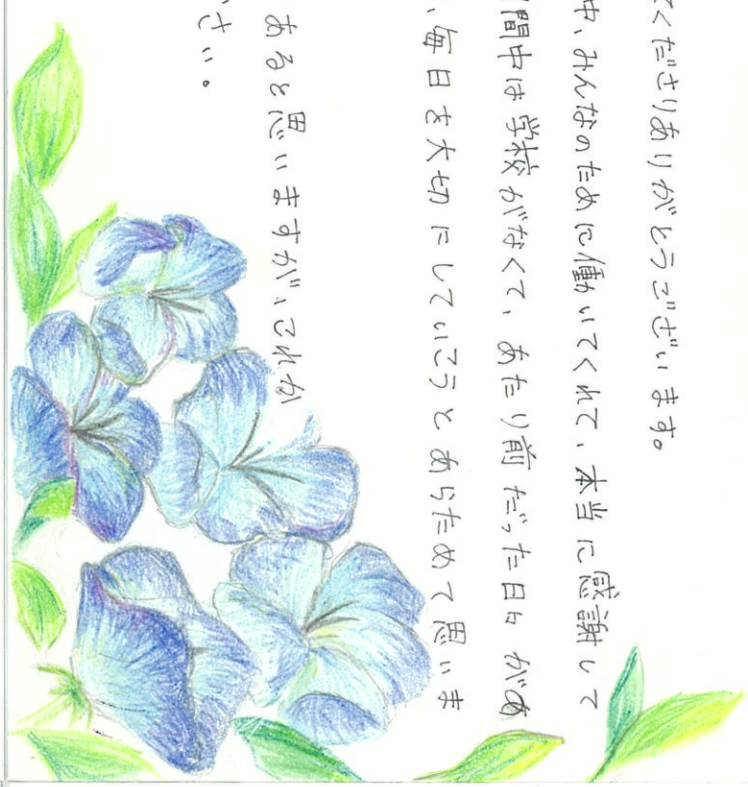 てくださりありがとうございます。
中、みんなのために働いてくれて、本当に感謝して
間中は学校がなくて、あたり前だった日々があ
、毎日を大切にしていこうとあらためて思いま
あると思いますが、これか
さい。